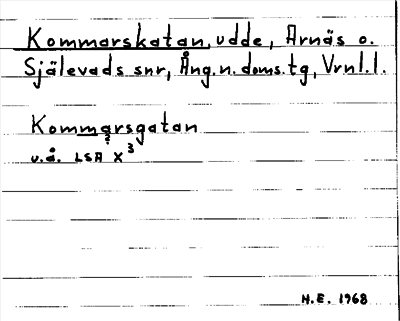 Kommarskatan, udde, Arnäs o.
Själevads snr, Ång.n.doms.tg, Vrnl.l.
Kommarsgatan
?
u.å. LSA X³
H.E. 1968